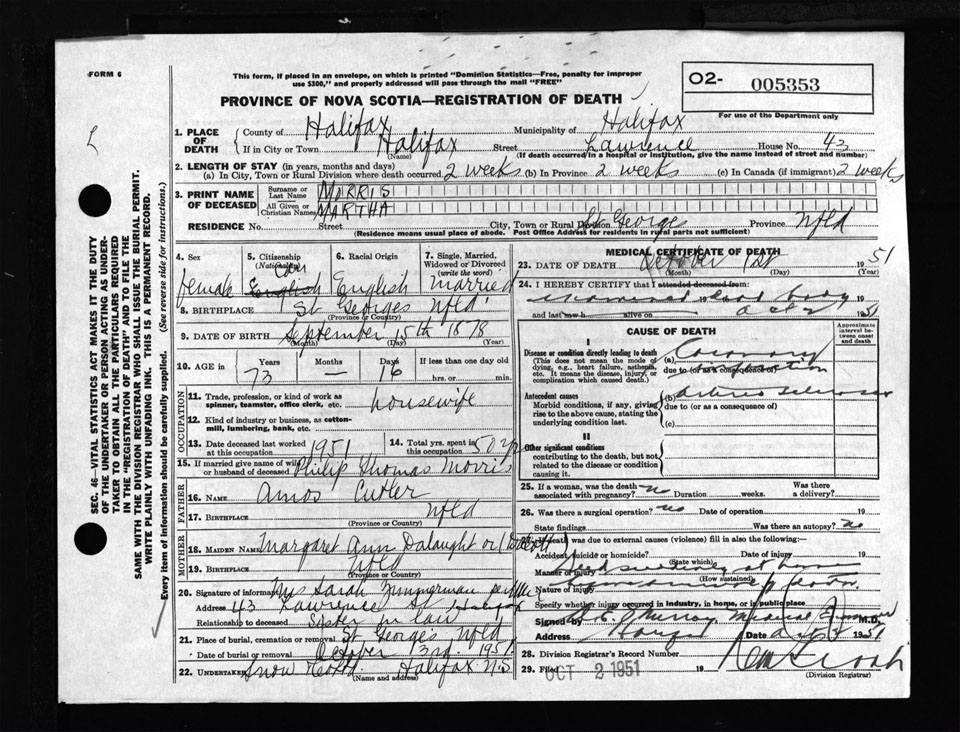 FORM 6
This form, if placed in an envelope, on which is printed "Dominion Statistics—Free, penalty for improper
use $300," and properly addressed will pass through the mail "FREE"
O2- 005353
For use of the Department only
PROVINCE OF NOVA SCOTIA—REGISTRATION OF DEATH
1. PLACE OF DEATH
County of Halifax Municipality of Halifax
If in City or Town Halifax Street Lawrence House No. 43
(Name) (If death occurred in a hospital or institution, give the name instead of street and number)
2. LENGTH OF STAY (in years, months and days)
(a) In City, Town or Rural Division where death occurred 2 weeks (b) In Province 2 weeks (c) In Canada (if immigrant) 2 weeks
3. PRINT NAME OF DECEASED
Surname or Last Name MORRIS
All Given or Christian Names MARTHA
RESIDENCE No. Street City, Town or Rural Division St Georges Province Nfld
(Residence means usual place of abode. Post Office Address for residents in rural parts not sufficient)
SEC. 46—VITAL STATISTICS ACT MAKES IT THE DUTY
OF THE UNDERTAKER OR PERSON ACTING AS UNDER-
TAKER TO OBTAIN ALL THE PARTICULARS REQUIRED
IN THE "REGISTRATION OF DEATH" AND TO FILE THE
SAME WITH THE DIVISION REGISTRAR WHO SHALL ISSUE THE BURIAL PERMIT.
WRITE PLAINLY WITH UNFADING INK. THIS IS A PERMANENT RECORD.
Every item of information should be carefully supplied. (See reverse side for instructions.)
4. Sex 5. Citizenship (Nationality) 6. Racial Origin 7. Single, Married, Widowed or Divorced (write the word)
female English English married
8. BIRTHPLACE St Georges Nfld
(Province or Country)
9. DATE OF BIRTH September 15th 1878
(Month) (Day) (Year)
10. AGE in Years Months Days If less than one day old
73 — 16 hrs. or min.
OCCUPATION
11. Trade, profession, or kind of work as
spinner, teamster, office clerk, etc. housewife
12. Kind of industry or business, as cotton-
mill, lumbering, bank, etc.
13. Date deceased last worked
at this occupation 1951
14. Total yrs. spent in
this occupation 50 yrs
15. If married give name of wife
or husband of deceased Philip Thomas Morris
FATHER
16. NAME Amos Cutler
17. BIRTHPLACE Nfld
(Province or Country)
MOTHER
18. MAIDEN NAME Margaret Ann Dalaught or
19. BIRTHPLACE Nfld
(Province or Country)
20. Signature of informant Mrs Sarah Zimmerman
Address 43 Lawrence St Halifax
Relationship to deceased Sister in law
21. Place of burial, cremation or removal St Georges Nfld
Date of burial or removal October 3rd 1951
22. Undertaker Snow Halifax N.S
(Name and address)
MEDICAL CERTIFICATE OF DEATH
23. DATE OF DEATH October 1st 1951
(Month) (Day) (Year)
24. I HEREBY CERTIFY that I attended deceased from:
examined dead body 19
and last saw h alive on 1951
CAUSE OF DEATH
Approximate interval between onset and death
I
Disease or condition directly leading to death
(This does not mean the mode of
dying, e.g., heart failure, asthenia,
etc. It means the disease, injury, or
complication which caused death.)
(a) Coronary
due to (or as a consequence of)
Antecedent causes
Morbid conditions, if any, giving
rise to the above cause, stating the
underlying condition last.
(b) arterio sclerosis
due to (or as a consequence of)
(c)
II
Other significant conditions
contributing to the death, but not
related to the disease or condition
causing it.
25. If a woman, was the death
associated with pregnancy? no Duration weeks. Was there a delivery?
26. Was there a surgical operation? no Date of operation 19
State findings Was there an autopsy? no
27. If death was due to external causes (violence) fill in also the following:
Accident, suicide or homicide? Date of injury 19
(State which)
Manner of injury Died suddenly at home
(How sustained)
Nature of injury
Specify whether injury occurred in industry, in home, or in public place
Signed by Murray Medical Examiner M.D.
Address Date 1951
28. Division Registrar's Record Number
29. Filed OCT 2 1951 19
(Division Registrar)